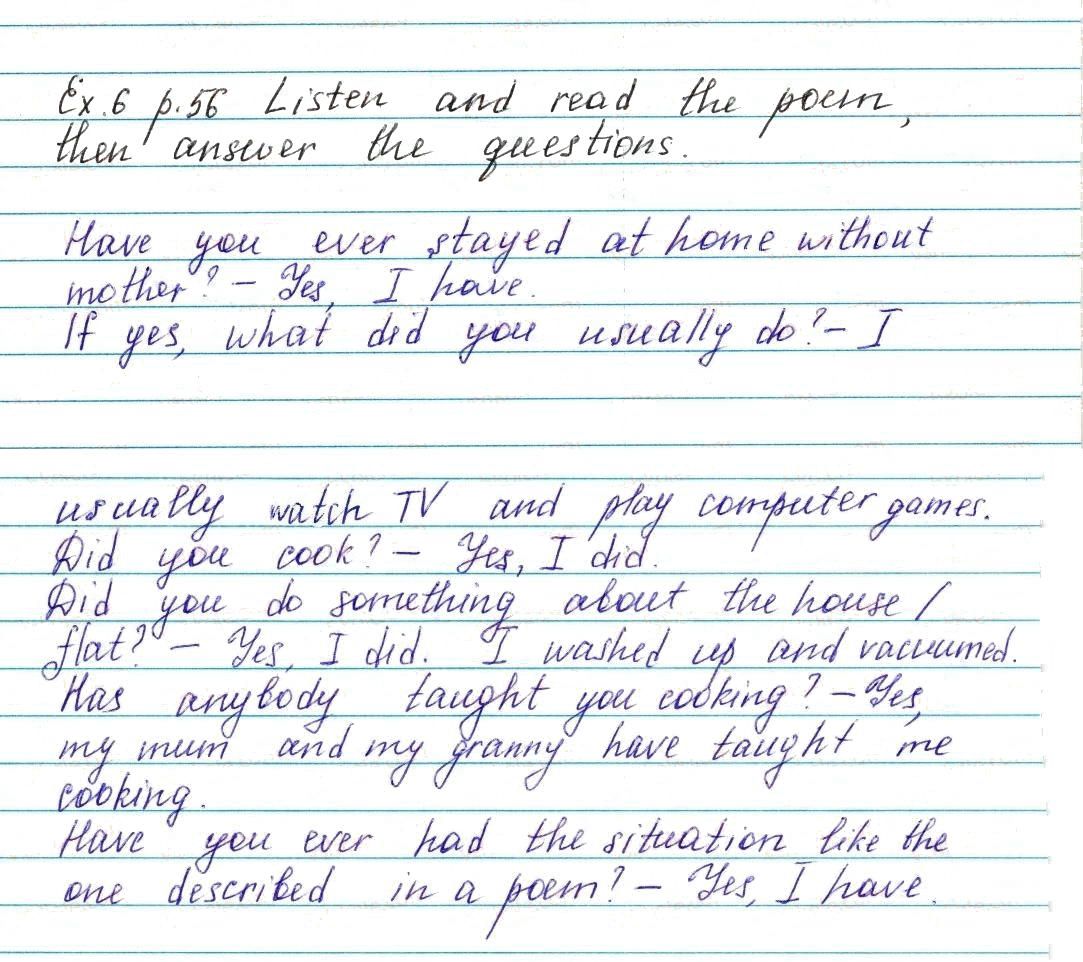 Ex.6 p.56 Listen and read the poem,
then answer the questions.
Have you ever stayed at home without
mother? – Yes, I have.
If yes, what did you usually do? – I
usually watch TV and play computer games.
Did you cook? – Yes, I did.
Did you do something about the house /
flat? – Yes, I did. I washed up and vacuumed.
Has anybody taught you cooking? – Yes,
my mum and my granny have taught me
cooking.
Have you ever had the situation like the
one described in a poem? – Yes, I have.